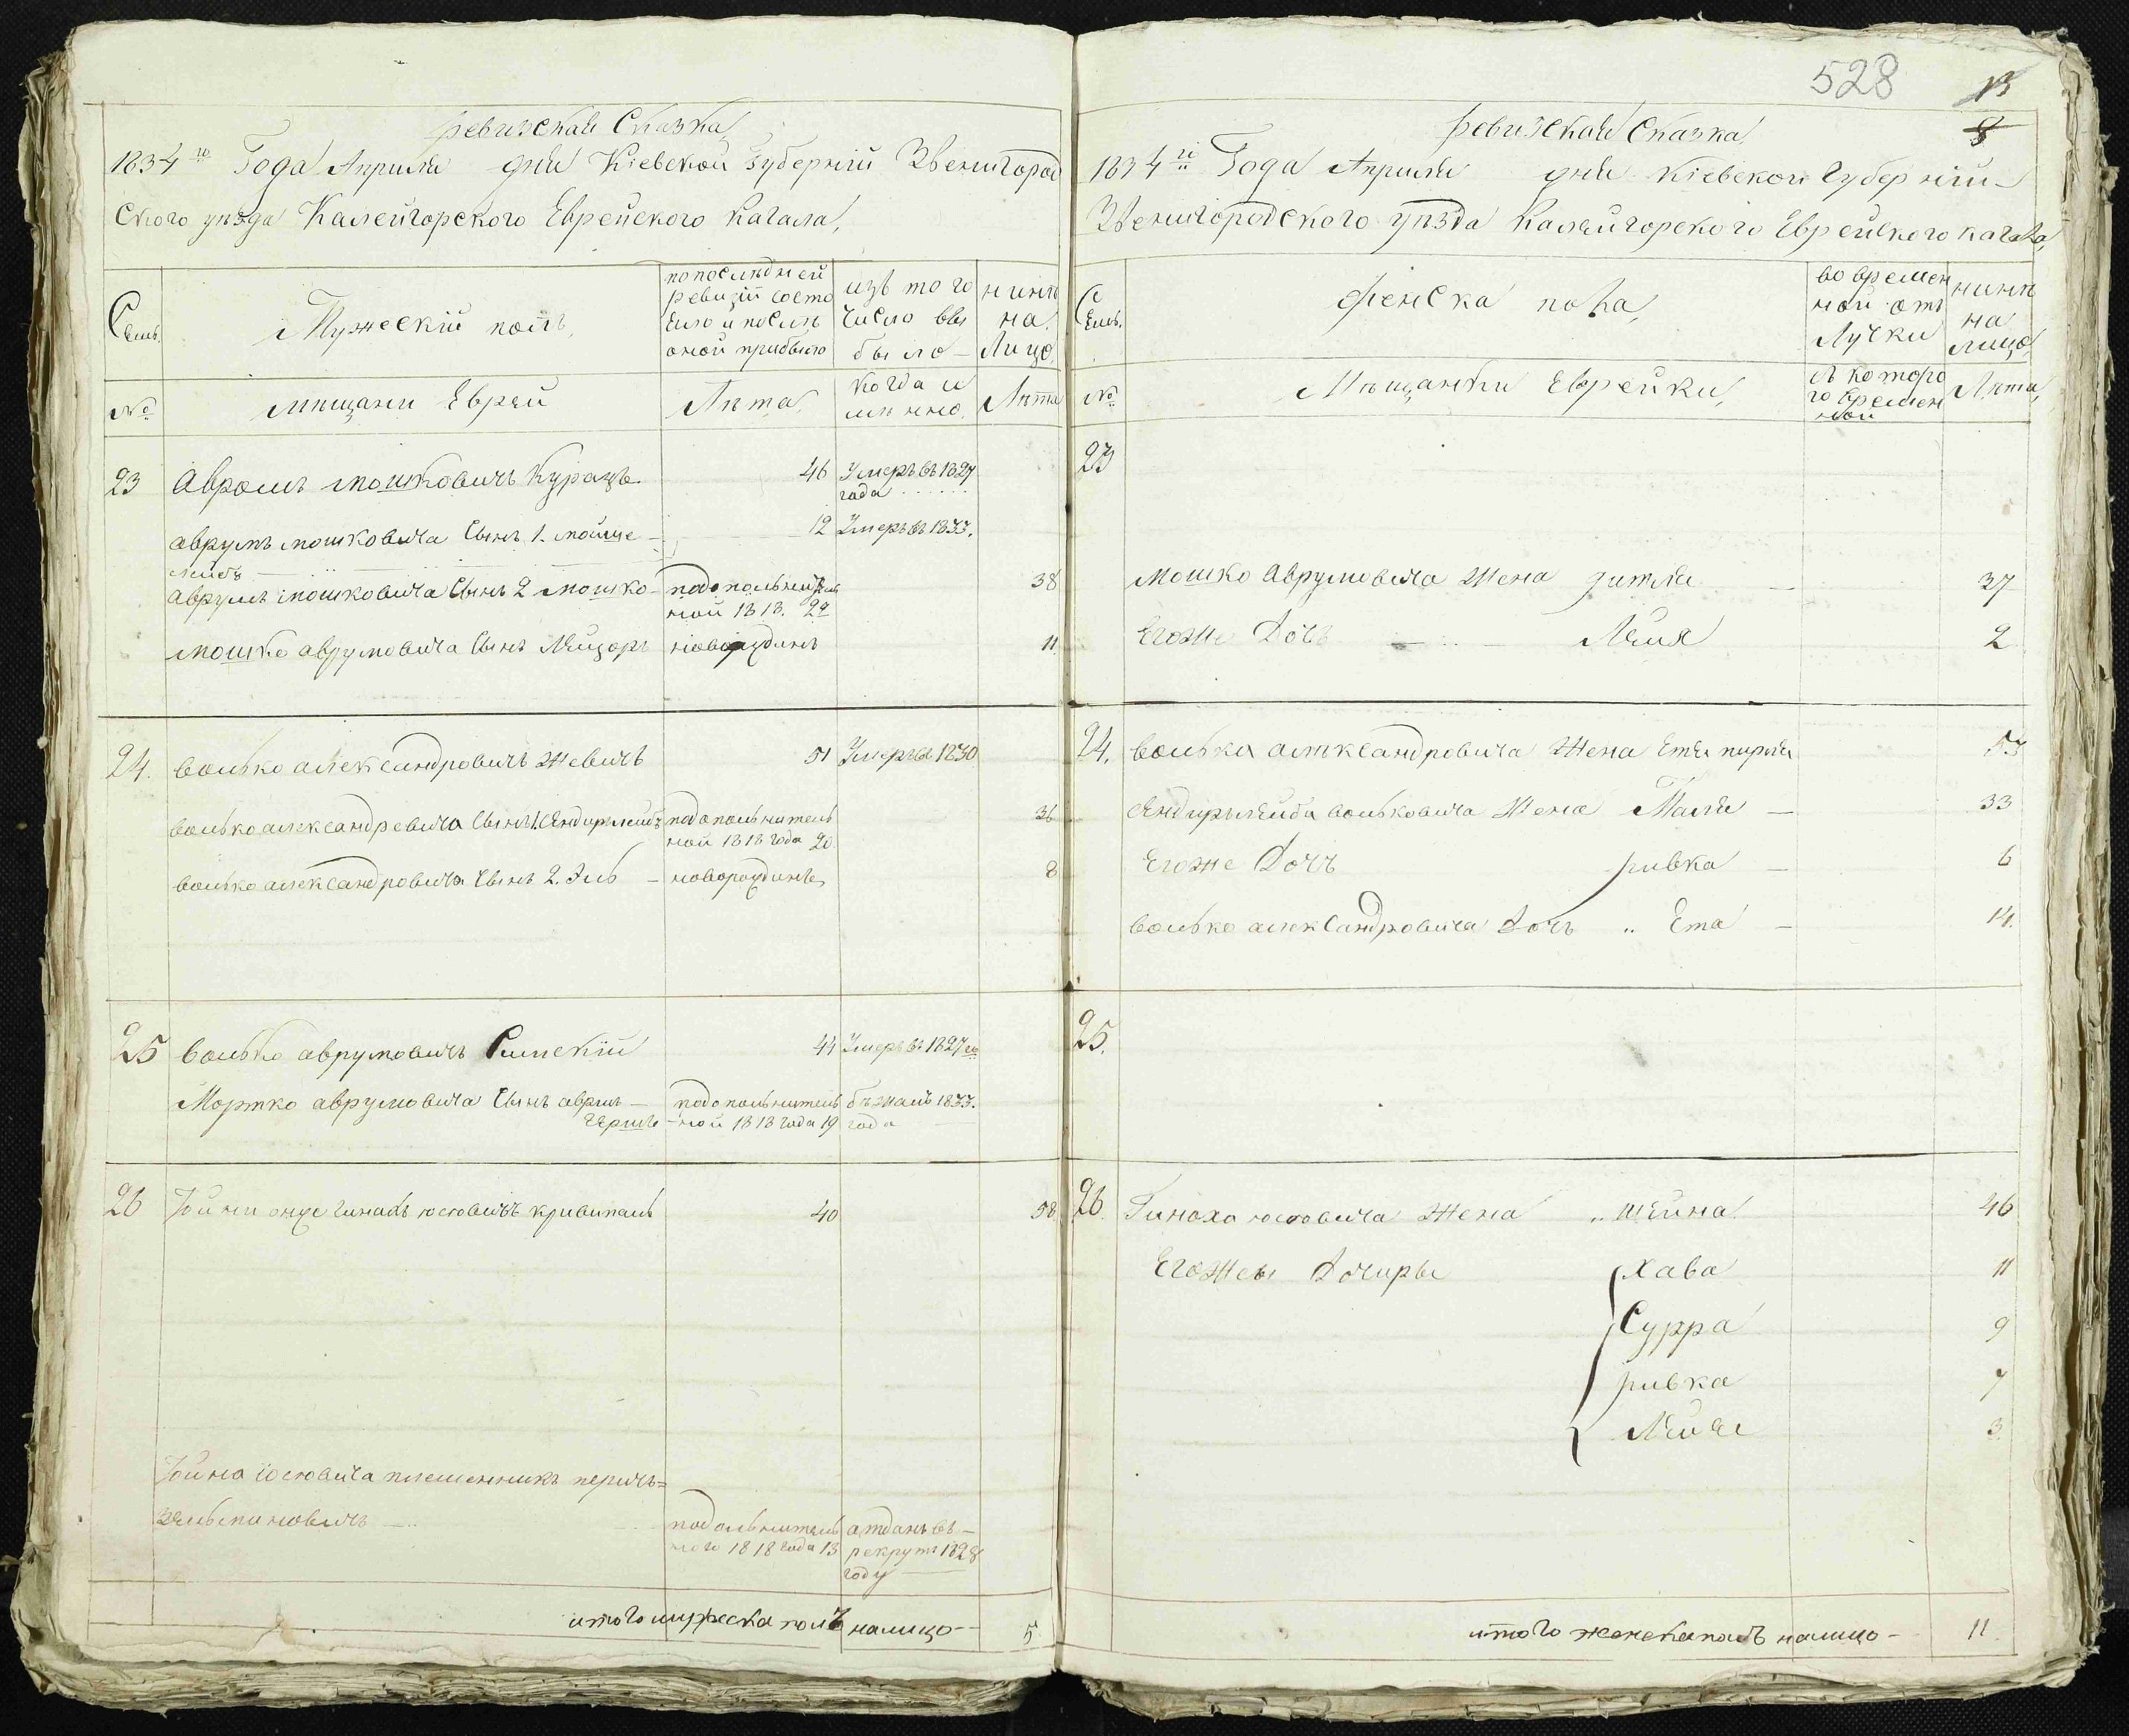 ревизскай Сказка,
1834 го Года Априля дня Кіевской Губерній Звенигород
ского уѣзда Калейгорского Еврейского Кагала,
Семь.
Мужескій полъ,
по послѣдней
ревизій состо
яло и послѣ
оной прибыло
изъ того
число вы
было
нинѣ
на
Лицо
№
мищани Еврей
Лѣта,
когда и
имѣнно,
Лѣта
23 Авромъ Мошковичъ Курацъ 46 Умеръ въ 1827
года
аврумъ мошковича Сынъ 1. мойше 12 Умеръ въ 1833.
лейбъ
аврумъ мошковича Сынъ 2 мошко по дополнитель 38
ной 1818. 22
мошко аврумовича Сынъ Лейзоръ новорозднъ 11
24. волько александровичъ жевичъ 51 Умеръ въ 1830
волько александровича Сынъ 1. Сендиръ лейбъ по дополнитель 36
ной 1818 года 20
волько александровича Сынъ 2. Эль новорожднъ 8
25 волько аврумовичъ Римскій 44 Умеръ въ 1827 го
Мортко аврумовича Сынъ аврумъ по дополнитель бѣжалъ 1833.
Гершъ ной 1818 года 19 года
26 Іойни онже Гинахъ юсювичъ кривипалъ 40 58
Іойна іосювича племенникъ перичъ=
зельпиновичъ по дополнитель атданъ въ
ного 1818 года 13 рекруты 1828
году
итого мужеска полъ налицо 5
528
13
8
ревизскай Сказка
1834 го Года Априля дня Кіевской Губерній
Звенигородского уѣзда Калейгорского Еврейского кагала,
Семь.
Женска пола,
во времен
ной отъ
Лучки
нинѣ
на
лицо
№
Мѣщанки Еврейки,
съ которо
го времен
ной
Лѣта,
23
мошко аврумовича жена гитля 37
Егоже Дочь Лея 2
24. волька александровича жена Етя пирля 53
Сендиръ лейба вольковича жена Маля 33
Егоже Дочъ ривка 6
волько александровича Дочъ „ Ета 14.
25.
26. Гиноха юсювича жена „ шейна 46
Егожеы Дочиры хава 11
Сурра 9
ривка 7
Лейе 3.
итого женска полъ налицо 11